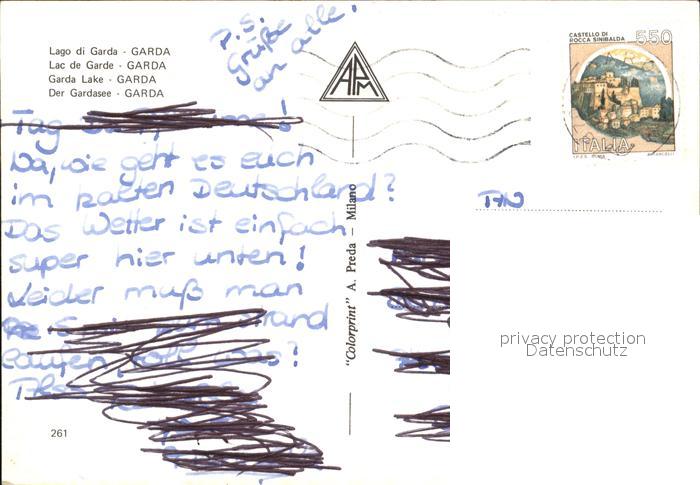 P.S.
Grüße
an alle!
Lago di Garda - GARDA
Lac de Garde - GARDA
Garda Lake - GARDA
Der Gardasee - GARDA
APM
CASTELLO DI
ROCCA SINIBALDA
550
ITALIA
Tag
Na, wie geht es euch
im kalten Deutschland?
Das Wetter ist einfach
super hier unten!
Leider muß man
Strand
laufen, was?
AN
"Colorprint" A. Preda - Milano
privacy protection
Datenschutz
261